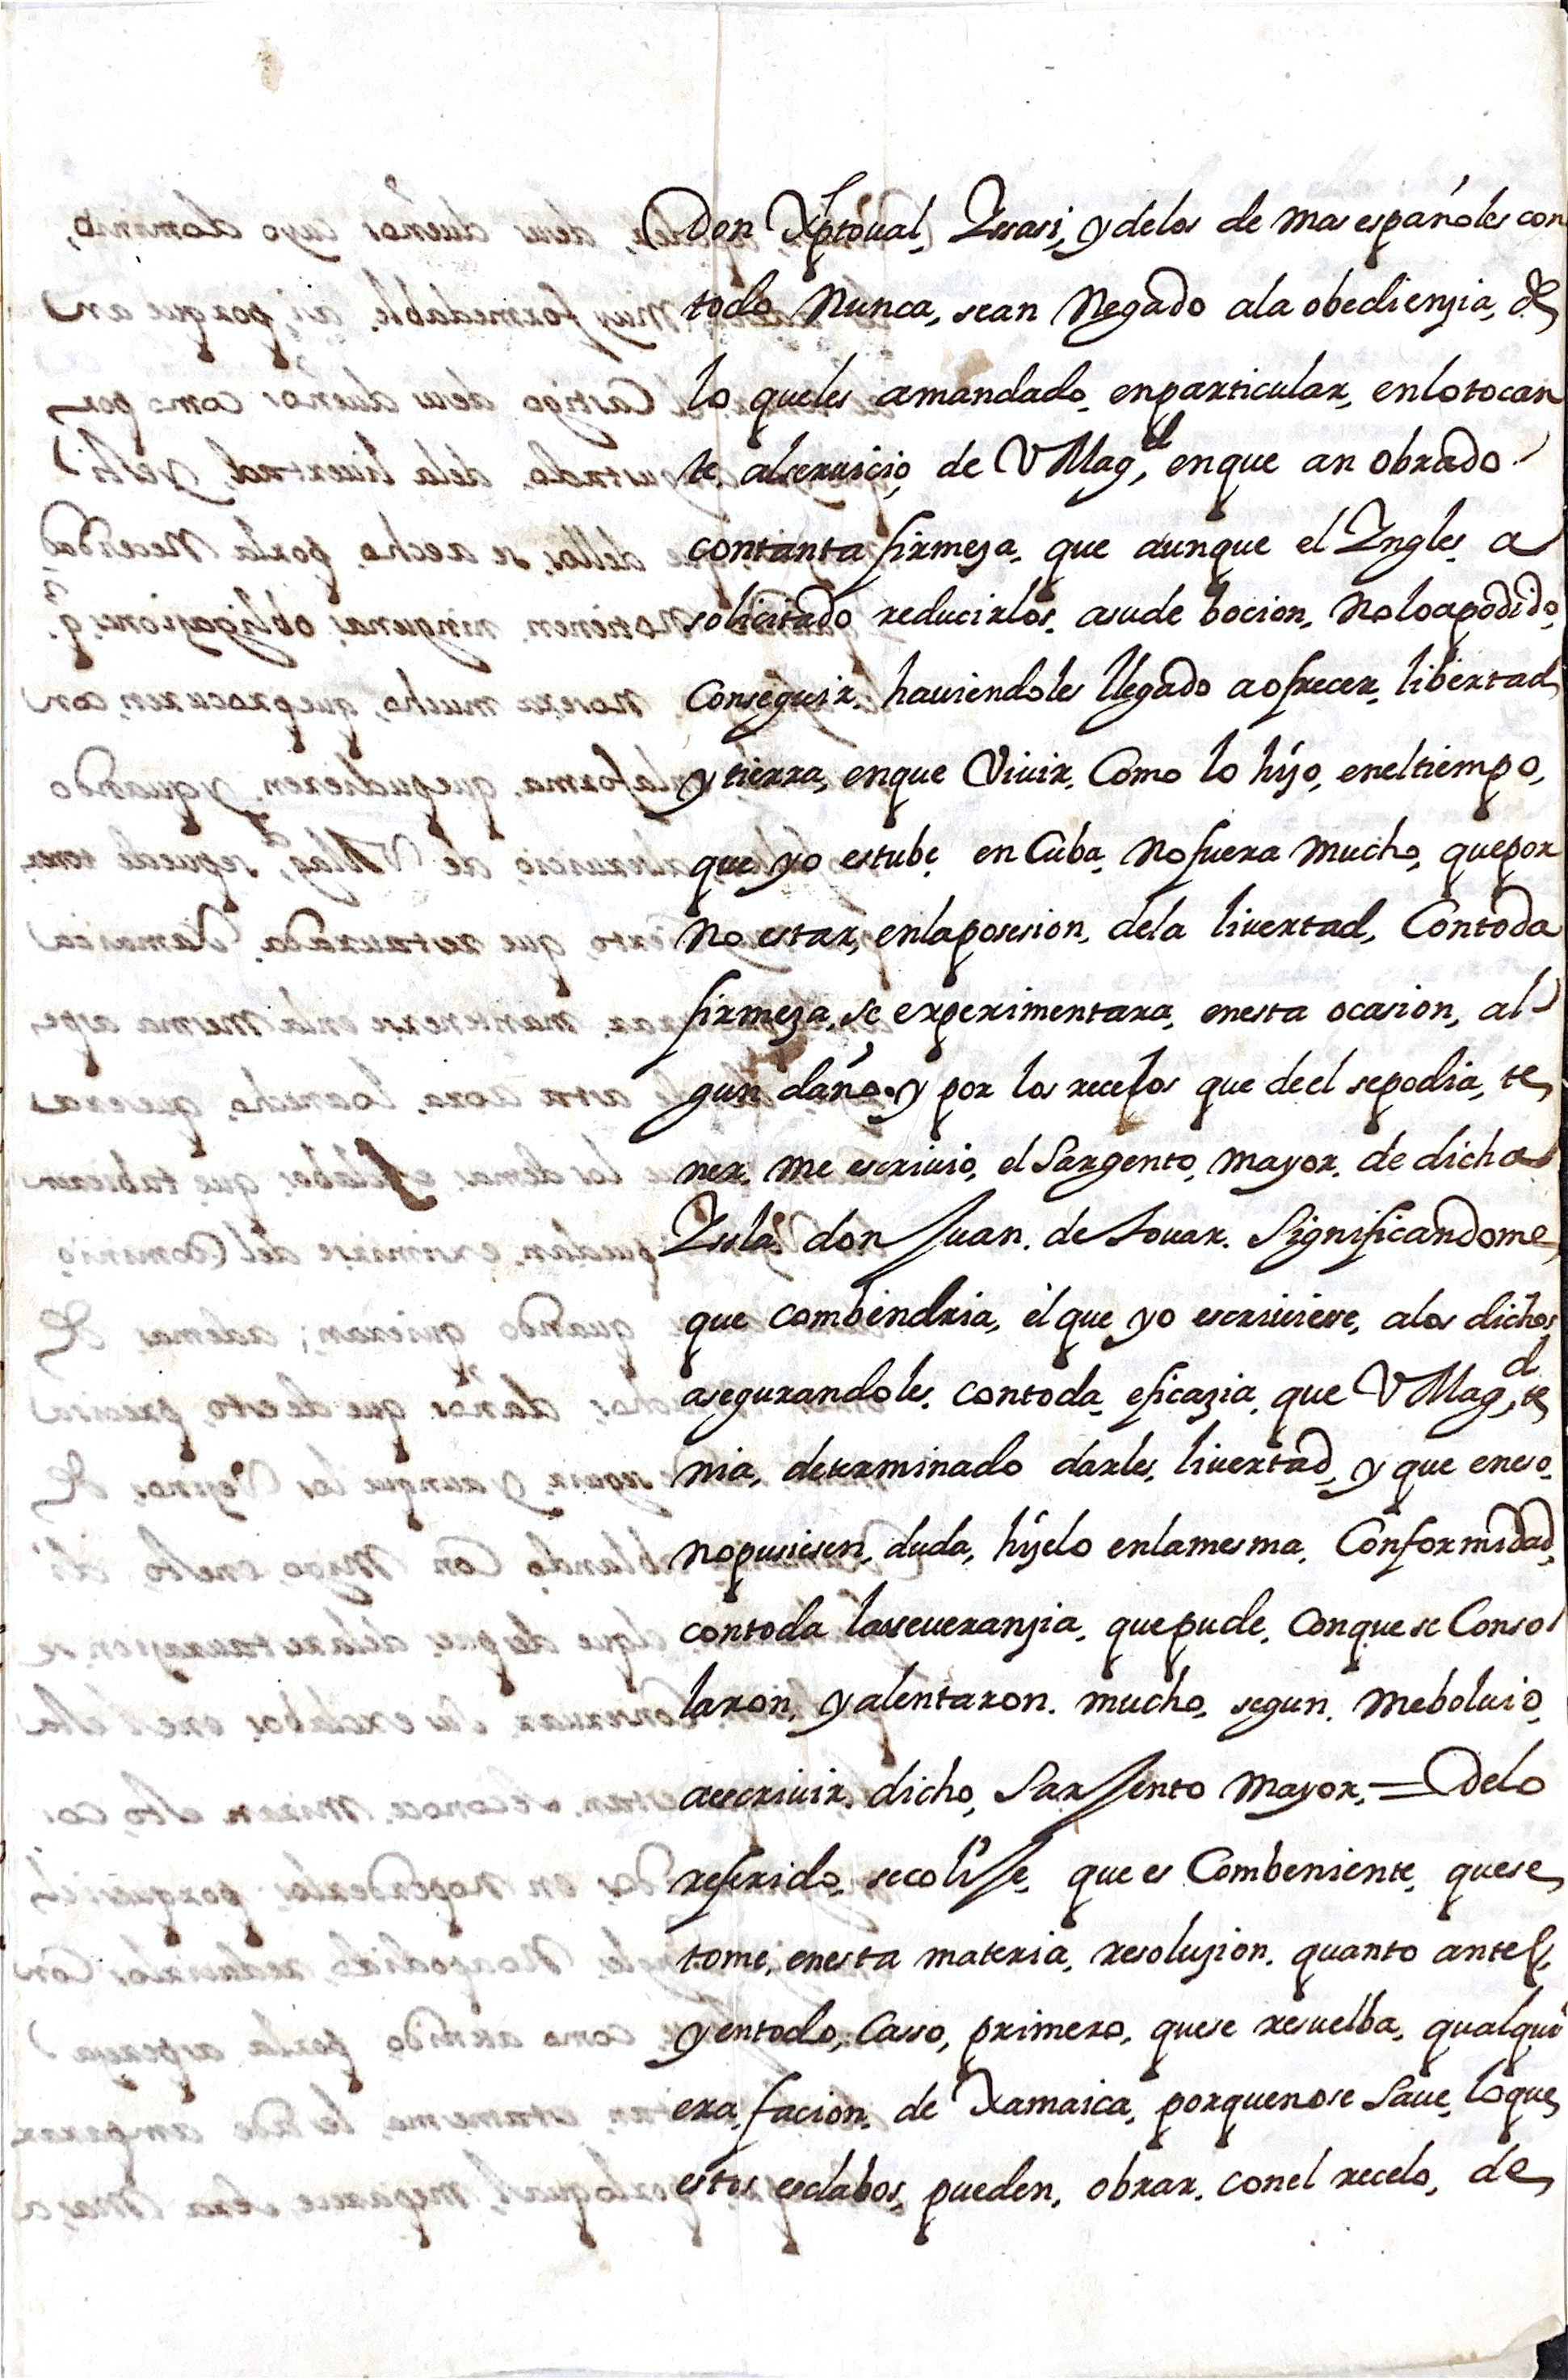 Don Xptoual, Ysasi, y delos de mas españoles con
todo Nunca, sean Negado ala obedienzia, de
lo queles amandado, enparticular, enlotocan
te, alseruicio, de VMagd, enque an obrado
contanta firmeza, que aunque el Yngles, a
solicitado reducirlos, asude bocion, Noloapodido,
Conseguir, hauiendoles llegado aofrecer, libertad
y tierra, enque Viuir, Como lo hizo, eneltiempo,
que yo estube, en Cuba, Nofuera mucho, quepor
No estar, enlaposesion, dela liuertad, Contoda
firmeza, se experimentara, enesta ocasion, al
gun daño. y por los recelos que deel sepodia, te
ner, me escriuio, el Sargento, mayor, de dicha
Ysla don Juan. de touar. Significandome
que combendria, el que yo escriuiese, alos dichos
asegurandoles, contoda, eficazia, que VMagd, te
nia, determinado darles, liuertad, y que eneso,
nopusiesen, duda, hizelo enlamesma, Conformidad,
contoda laseueranzia, quepude, Conquese Conso
laron, y alentaron. mucho, segun, meboluio,
aescriuir, dicho, Sarjento mayor, = delo
referido, secolije, que es Combeniente, quese
tome, enesta materia, resoluzion. quanto antes,
y entodo, Casso, primero, quese resuelba, qualqui
era, facion, de Xamaica, porquenose Saue, loque
estos esclabos, pueden, obrar, conel recelo, de